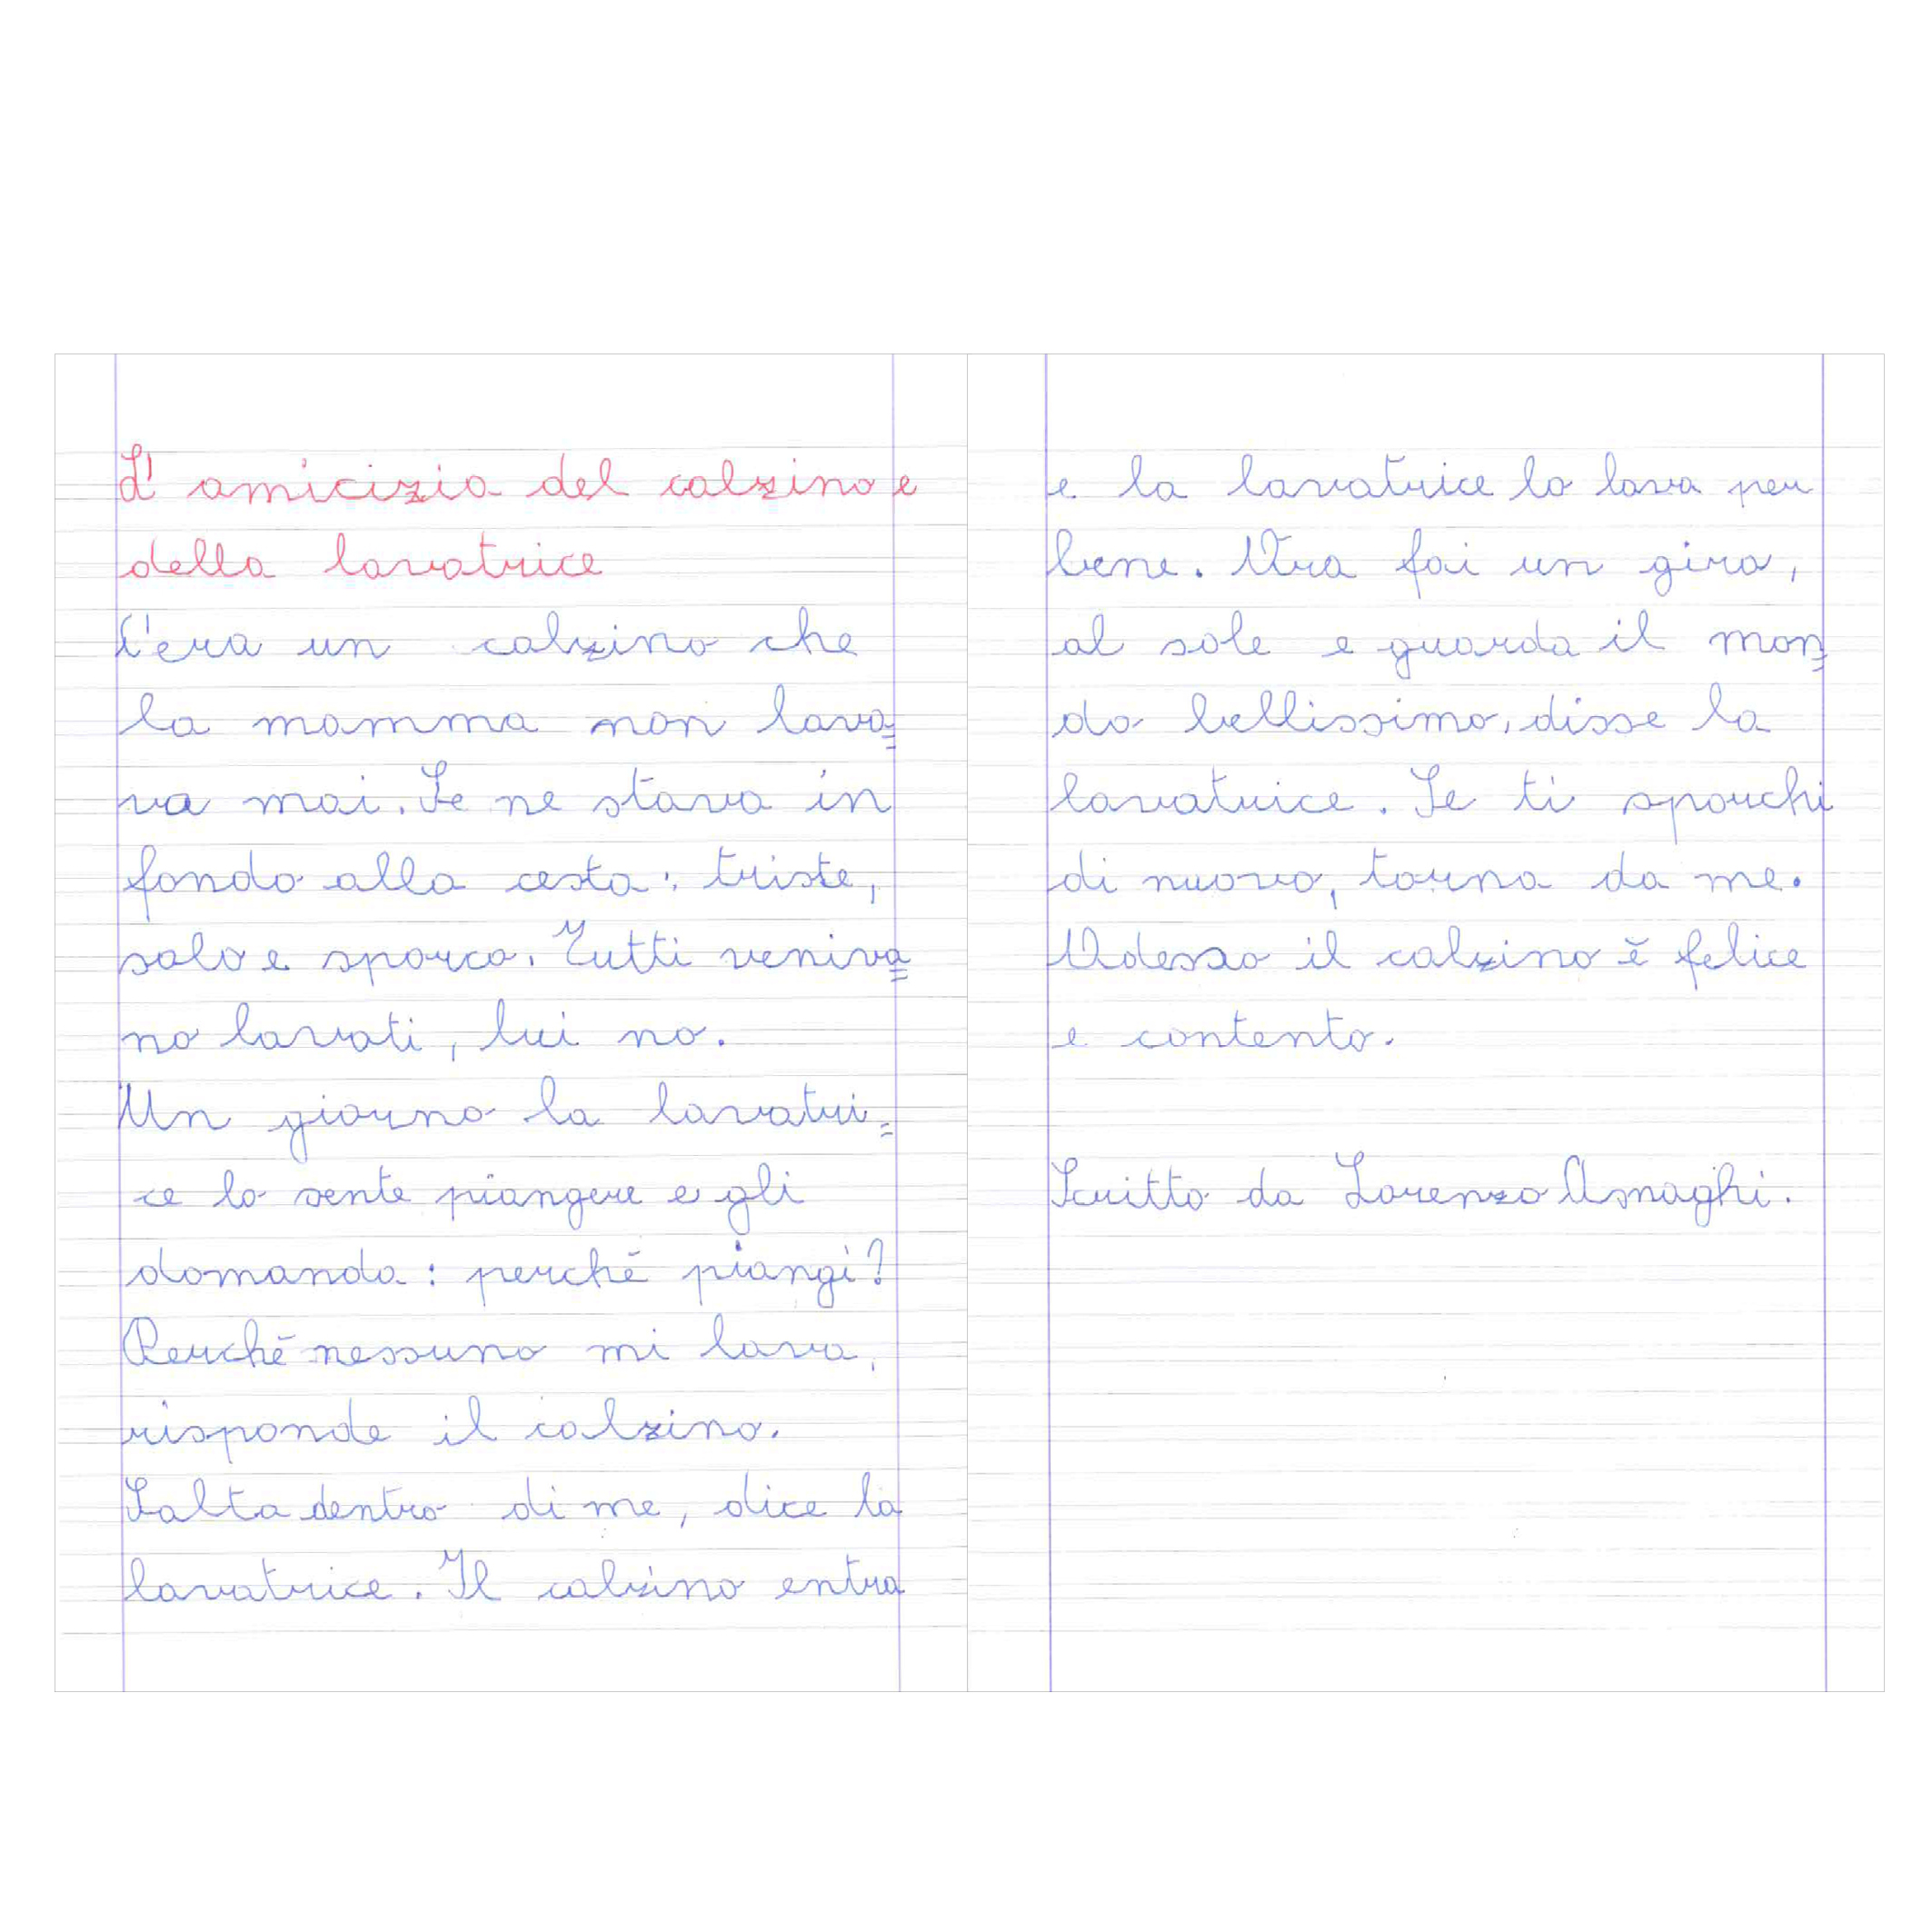 L'amicizia del calzino e
della lavatrice
C'era un calzino che
la mamma non lava=
va mai. Se ne stava in
fondo alla cesta: triste,
solo e sporco. Tutti veniva=
no lavati, lui no.
Un giorno la lavatri=
ce lo sente piangere e gli
domanda: perché piangi?
Perché nessuno mi lava,
risponde il calzino.
Salta dentro di me, dice la
lavatrice. Il calzino entra
e la lavatrice lo lava per
bene. Ora fai un giro,
al sole e guarda il mon=
do bellissimo, disse la
lavatrice. Se ti sporchi
di nuovo, torna da me.
Adesso il calzino è felice
e contento.
Scritto da Lorenzo Asnaghi.